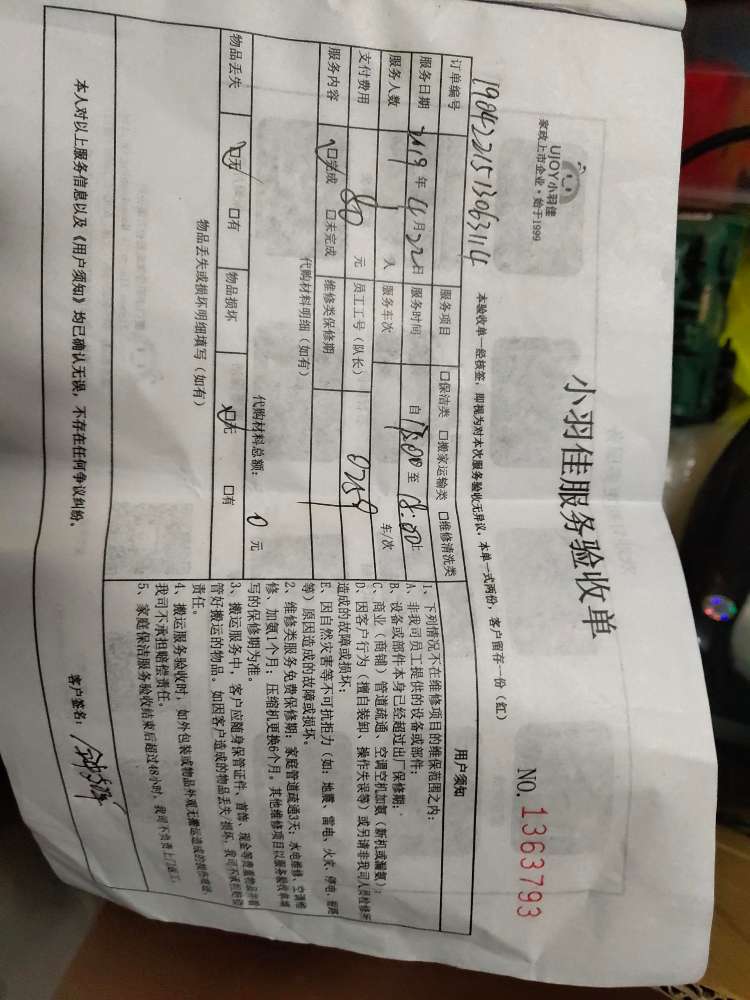 UJOY小羽佳
家政上市企业·始于1999
小羽佳服务验收单
NO. 1363793
本验收单一经核签，即视为对本次服务验收无异议，本单一式两份，客户留存一份（红）
订单编号 1904221513063114 服务项目 口保洁类 口搬家运输类 口维修清洗类
服务日期 2019年4月22日 服务时间 自17:00至18:00止
服务人数 1人 服务车次 车/次
支付费用 80元 员工工号（队长） 0259
服务内容 口完成 口未完成 维修类保修期
代购材料明细（如有）
代购材料总额： 0元
物品丢失 口无 口有 物品损坏 口无 口有
物品丢失或损坏明细填写（如有）
用户须知
1、下列情况不在维修项目的维保范围之内：
A、非我司员工提供的设备或部件；
B、设备或部件本身已经超过出厂保修期；
C、商业（商铺）管道疏通、空调空机加氨（新机或漏氨）；
D、因客户行为（擅自装卸、操作失误等）或另请非我司人员检修所
造成的故障或损坏；
E、因自然灾害等不可抗拒力（如：地震、雷电、火灾、停电、
等）原因造成的故障或损坏。
2、维修类服务免费保修期：家庭管道疏通3天；水电维修、空调维
修、加氨1个月；压缩机更换6个月。其他维修项目以服务验收单填
写的保修期为准。
3、搬运服务中，客户应随身保管证件、首饰、现金等贵重物品并看
管好搬运的物品。如因客户造成的物品丢失/损坏，我司不承担赔偿
责任。
4、搬运服务验收时，如外包装或物品外观无搬运造成的损伤痕迹，
我司不承担赔偿责任。
5、家庭保洁服务验收结束后超过48小时，我司不负责上门返工。
本人对以上服务信息以及《用户须知》均已确认无误，不存在任何争议纠纷。
客户签名：